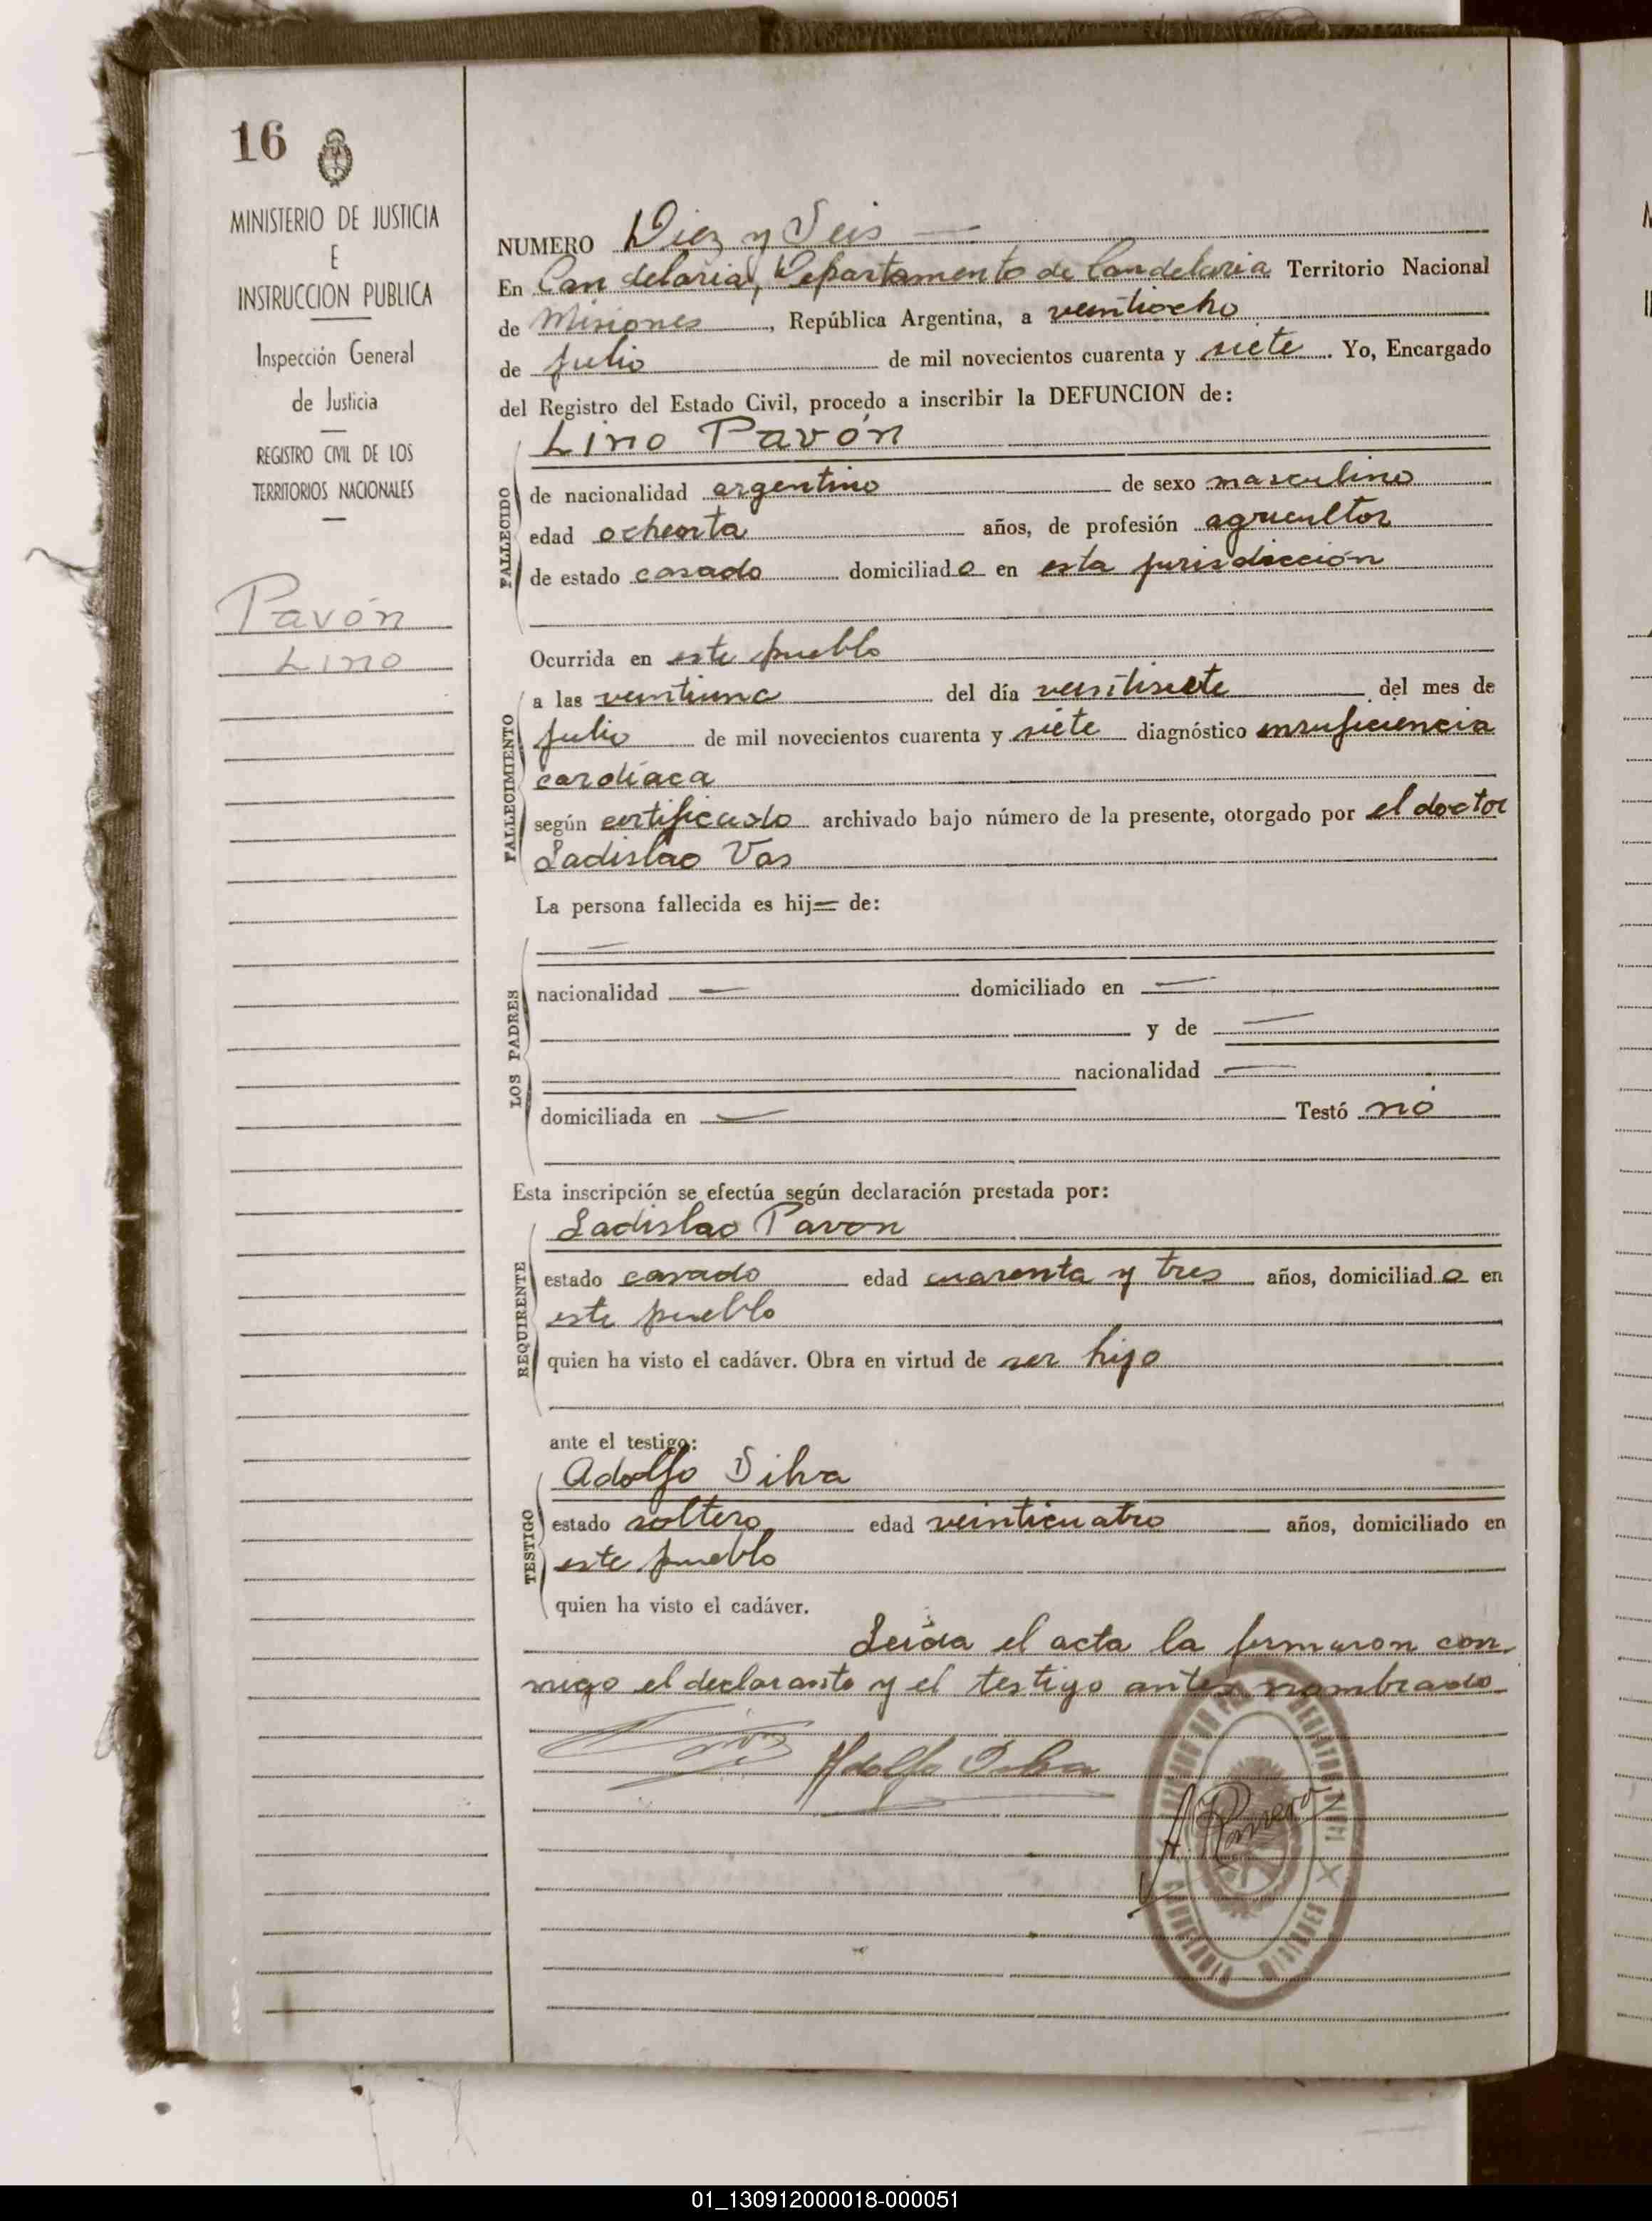 16
MINISTERIO DE JUSTICIA
E
INSTRUCCION PUBLICA
Inspección General
de Justicia
REGISTRO CIVIL DE LOS
TERRITORIOS NACIONALES
Pavón
Lino
NUMERO Diez y Seis
En Candelaria, Departamento de Candelaria Territorio Nacional
de Misiones, República Argentina, a veintiocho
de julio de mil novecientos cuarenta y siete. Yo, Encargado
del Registro del Estado Civil, procedo a inscribir la DEFUNCION de:
Lino Pavón
FALLECIDO
de nacionalidad argentino de sexo masculino
edad ochenta años, de profesión agricultor
de estado casado domiciliado en esta jurisdicción
Ocurrida en este pueblo
FALLECIMIENTO
a las veintiuna del día veintisiete del mes de
julio de mil novecientos cuarenta y siete diagnóstico insuficiencia
cardíaca
según certificado archivado bajo número de la presente, otorgado por el doctor
Ladislao Vas
La persona fallecida es hij= de:
LOS PADRES
nacionalidad — domiciliado en —
y de —
nacionalidad —
domiciliada en — Testó no
Esta inscripción se efectúa según declaración prestada por:
Ladislao Pavon
REQUIRENTE
estado casado edad cuarenta y tres años, domiciliado en
este pueblo
quien ha visto el cadáver. Obra en virtud de ser hijo
ante el testigo:
Adolfo Silva
TESTIGO
estado soltero edad veinticuatro años, domiciliado en
este pueblo
quien ha visto el cadáver.
Leída el acta la firmaron con
migo el declarante y el testigo antes nombrado
Adolfo Silva
CANDELARIA MISIONES
01_130912000018-000051